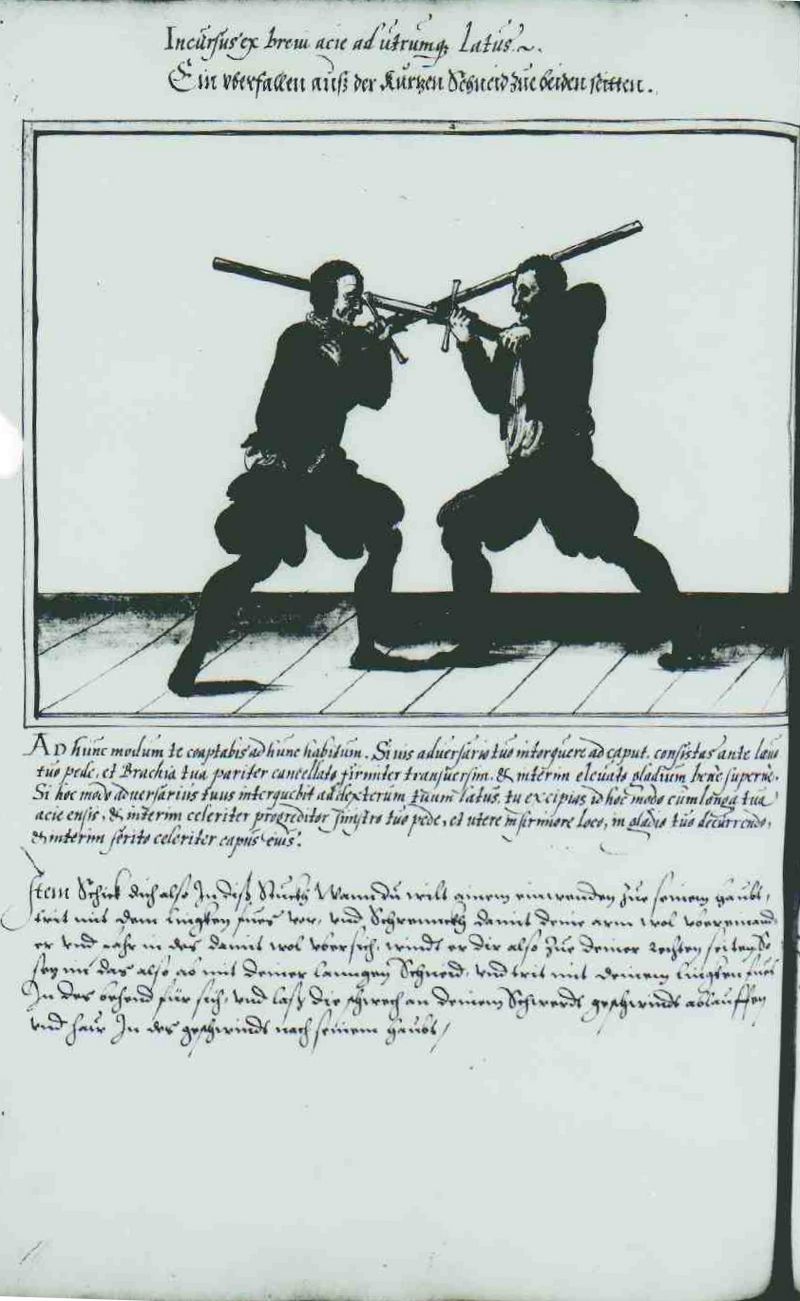 Incursus ex brevi acie ad utrumq₃ latus.
Ein vberfallen auß der Kurtzen Schneid zue beiden seitten.
AD hunc modum te coaptabis ad hunc habitum. Si uis adversario tuo intorquere ad caput, consistas ante laeuo
tuo pede, et Brachia tua pariter cancellato firmiter transuersim, & interim eleuato gladium bene superne.
Si hoc modo adversarius tuus intorquebit ad dexterum tuum latus, tu excipias id hoc modo cum longa tua
acie ensis, & interim celeriter progreditor sinistro tuo pede, et utere infirmiore loco, in gladio tuo decurrendo,
& interim ferito celeriter caput eius.
Item Schick dich also In diß Stuckh Wann du wilt ainem einwenden zue seinem haubt,
trit mit dem lingken fues vor, vnd Schrennckh damit deine arm wol vberainand
er vnd fahr in des damit wol vbersich, windt er dir also zue deiner rechten seiten So
setz im das also ab mit deiner lanngen Schneid, vnd trit mit deinem lingken fues
In des behend für sich, vnd laß die schwech an deinem Schwerdt geschwindt ablauffen
vnd haw In des geschwindt nach seinem haubt